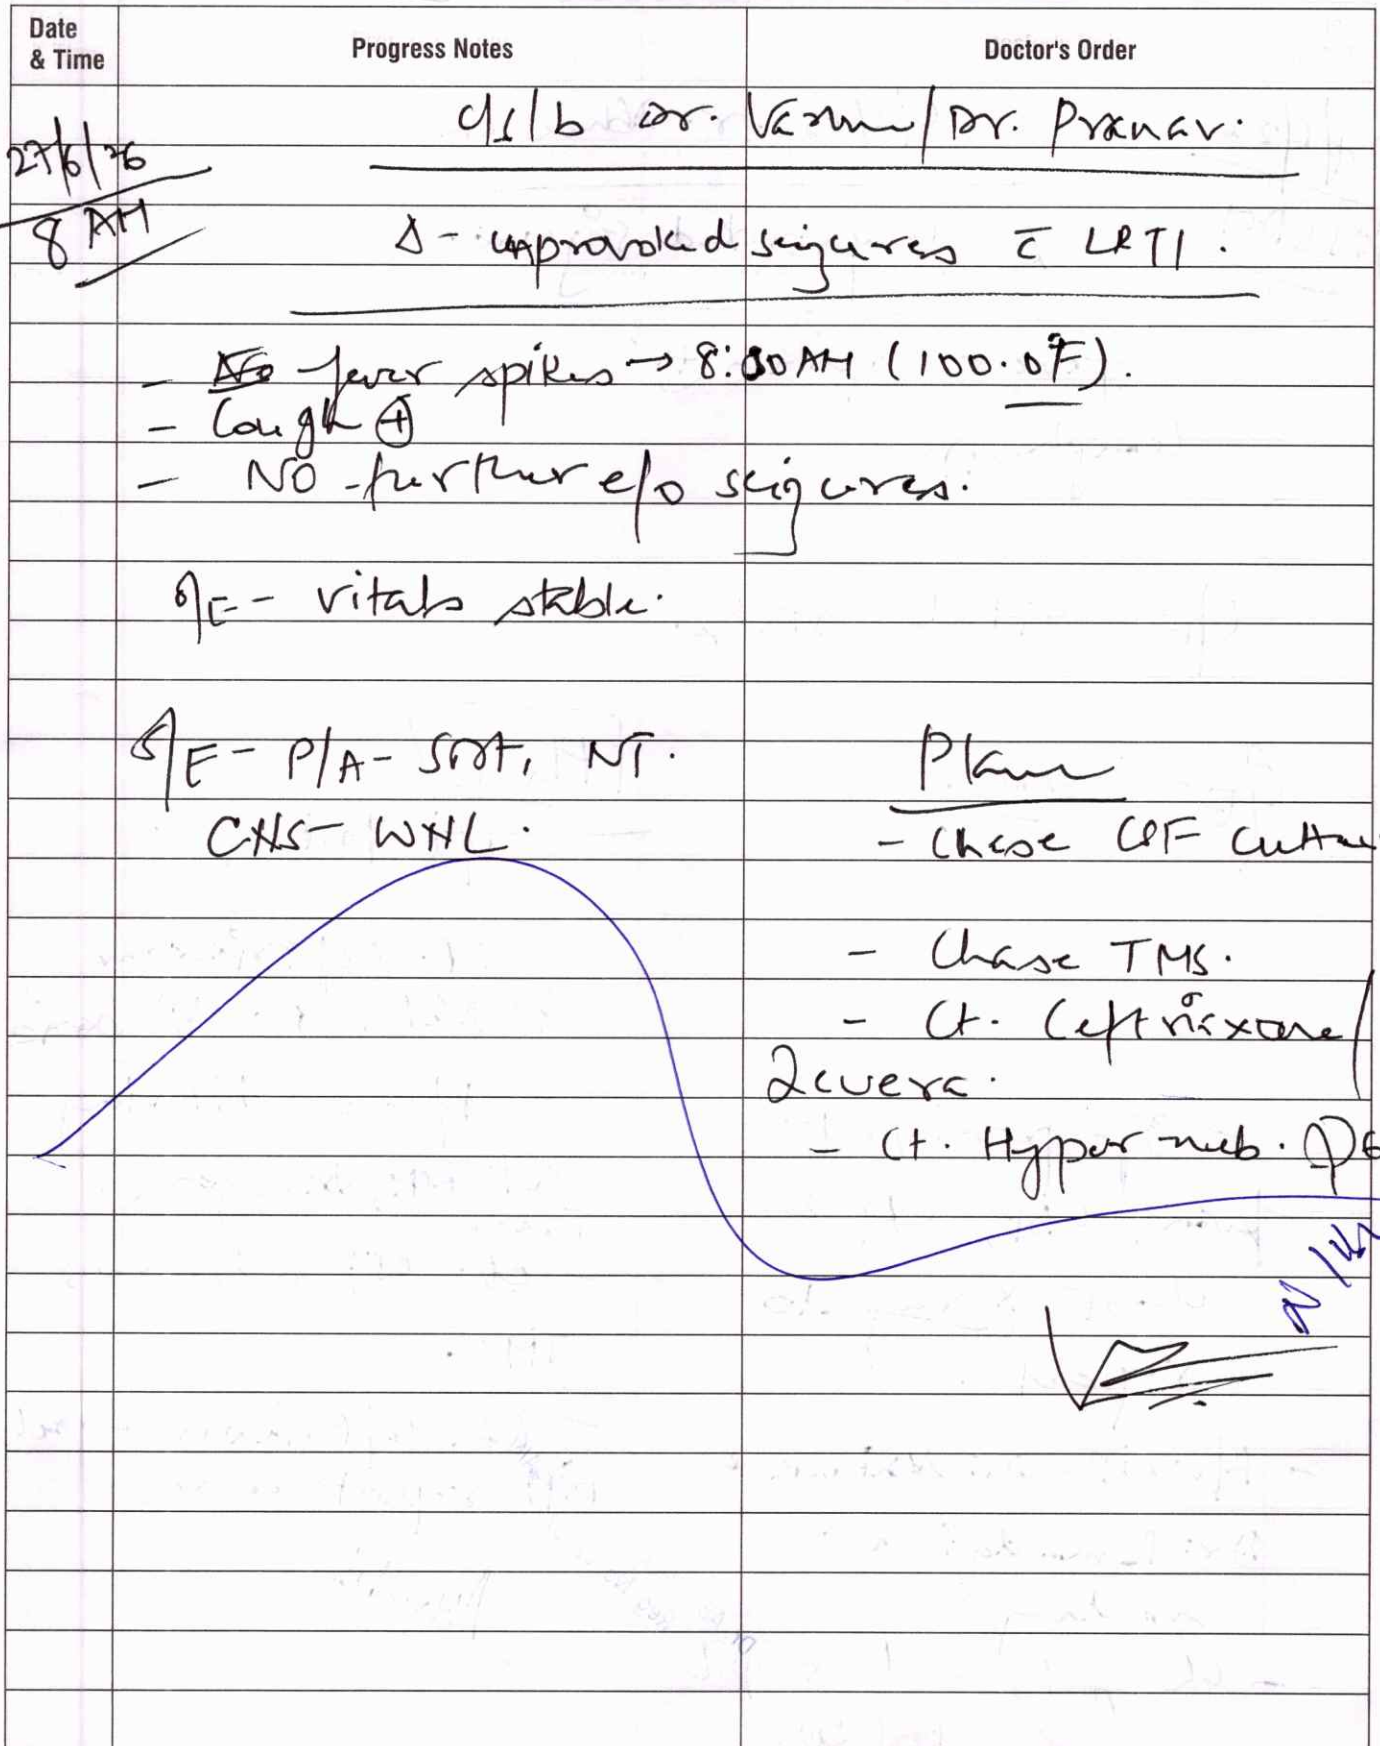 Date & Time
Progress Notes
Doctor's Order
27/6/26
8 AM
c/s/b Dr. / Dr. Pranav.
Δ - unprovoked seizures c̄ LRTI.
- No fever spikes → 8:00 AM (100.0°F).
- Cough ⊕
- NO further e/o seizures.
O/E - vitals stable.
S/E - P/A - soft, NT.
CNS - WNL.
Plan
- Chase CSF Culture
- Chase TMS.
- Ct. Ceftriaxone /
- Ct. Hyper neb.